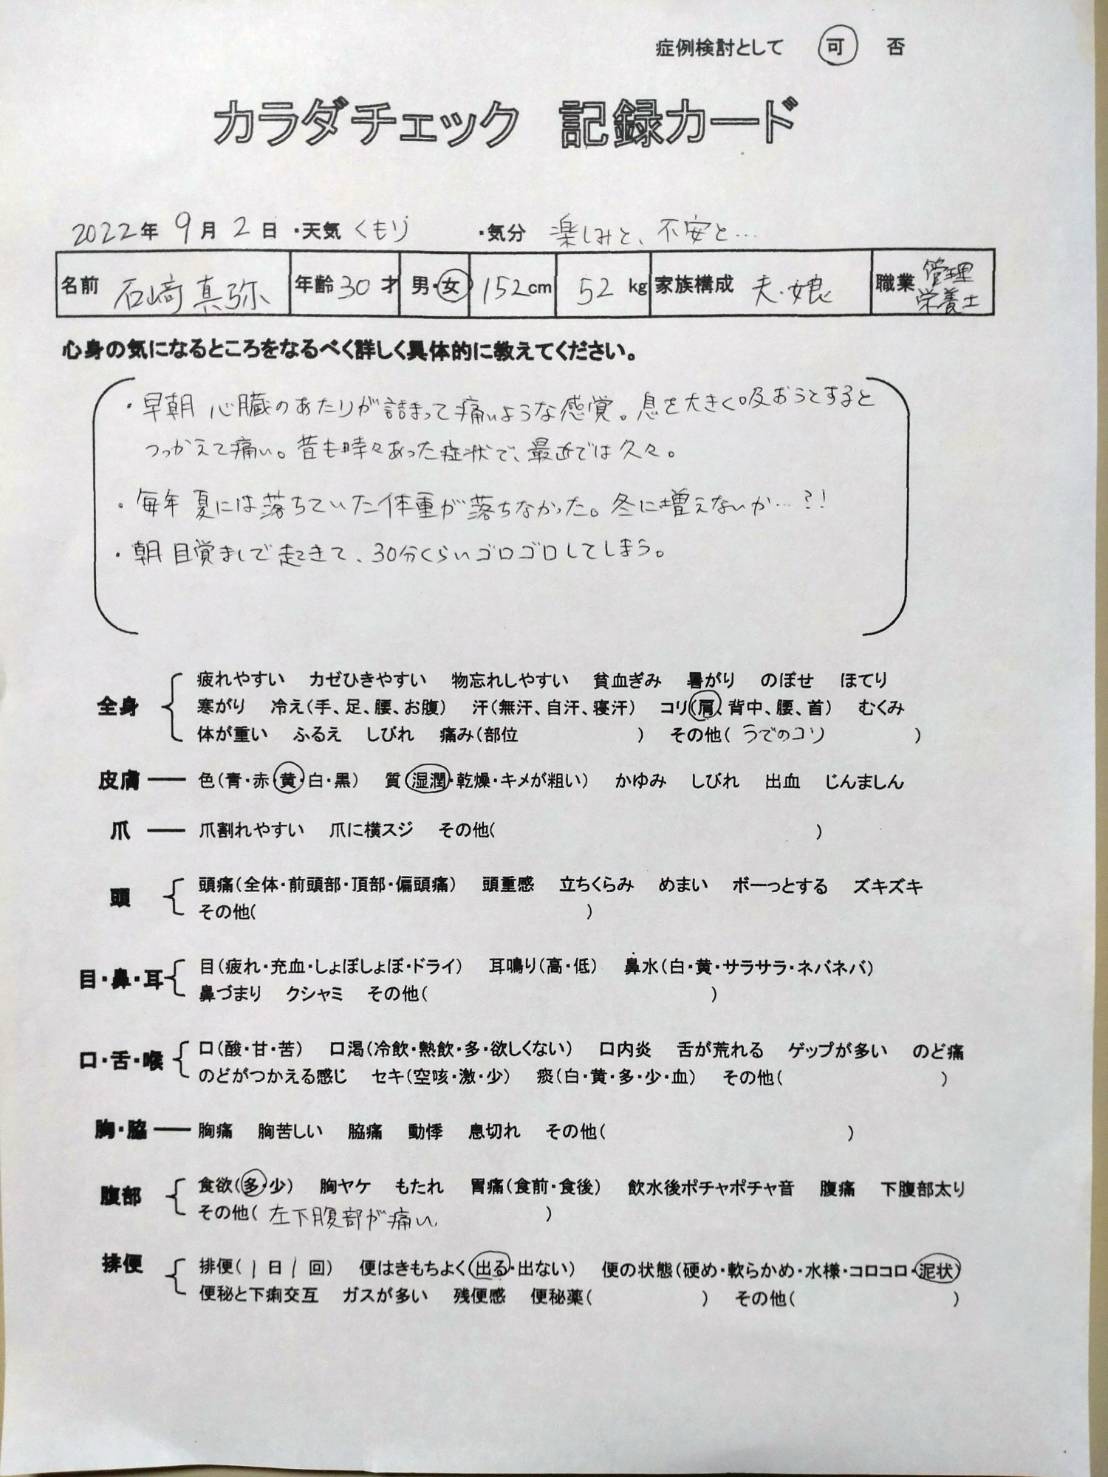 症例検討として 可 否
カラダチェック 記録カード
2022年 9月 2日 ・天気 くもり ・気分 楽しみと、不安と…
名前 石崎真弥 年齢 30 才 男・女 152cm 52 kg 家族構成 夫・娘 職業 管理栄養士
心身の気になるところをなるべく詳しく具体的に教えてください。
・早朝 心臓のあたりが詰まって痛いような感覚。息を大きく吸おうとすると
つっかえて痛い。昔も時々あった症状で、最近では久々。
・毎年 夏には落ちていた体重が落ちなかった。冬に増えないか…?!
・朝 目覚ましで起きて、30分くらいゴロゴロしてしまう。
疲れやすい カゼひきやすい 物忘れしやすい 貧血ぎみ 暑がり のぼせ ほてり
全身 寒がり 冷え(手、足、腰、お腹) 汗(無汗、自汗、寝汗) コリ(肩、背中、腰、首) むくみ
体が重い ふるえ しびれ 痛み(部位 ) その他( うでのコリ )
皮膚 色(青・赤・黄・白・黒) 質(湿潤・乾燥・キメが粗い) かゆみ しびれ 出血 じんましん
爪 爪割れやすい 爪に横スジ その他( )
頭 頭痛(全体・前頭部・頂部・偏頭痛) 頭重感 立ちくらみ めまい ボーっとする ズキズキ
その他( )
目・鼻・耳 目(疲れ・充血・しょぼしょぼ・ドライ) 耳鳴り(高・低) 鼻水(白・黄・サラサラ・ネバネバ)
鼻づまり クシャミ その他( )
口・舌・喉 口(酸・甘・苦) 口渇(冷飲・熱飲・多・欲しくない) 口内炎 舌が荒れる ゲップが多い のど痛
のどがつかえる感じ セキ(空咳・激・少) 痰(白・黄・多・少・血) その他( )
胸・脇 胸痛 胸苦しい 脇痛 動悸 息切れ その他( )
腹部 食欲(多・少) 胸ヤケ もたれ 胃痛(食前・食後) 飲水後ポチャポチャ音 腹痛 下腹部太り
その他( 左下腹部が痛い )
排便 排便( 1 日 1 回) 便はきもちよく(出る・出ない) 便の状態(硬め・軟らかめ・水様・コロコロ・泥状)
便秘と下痢交互 ガスが多い 残便感 便秘薬( ) その他( )